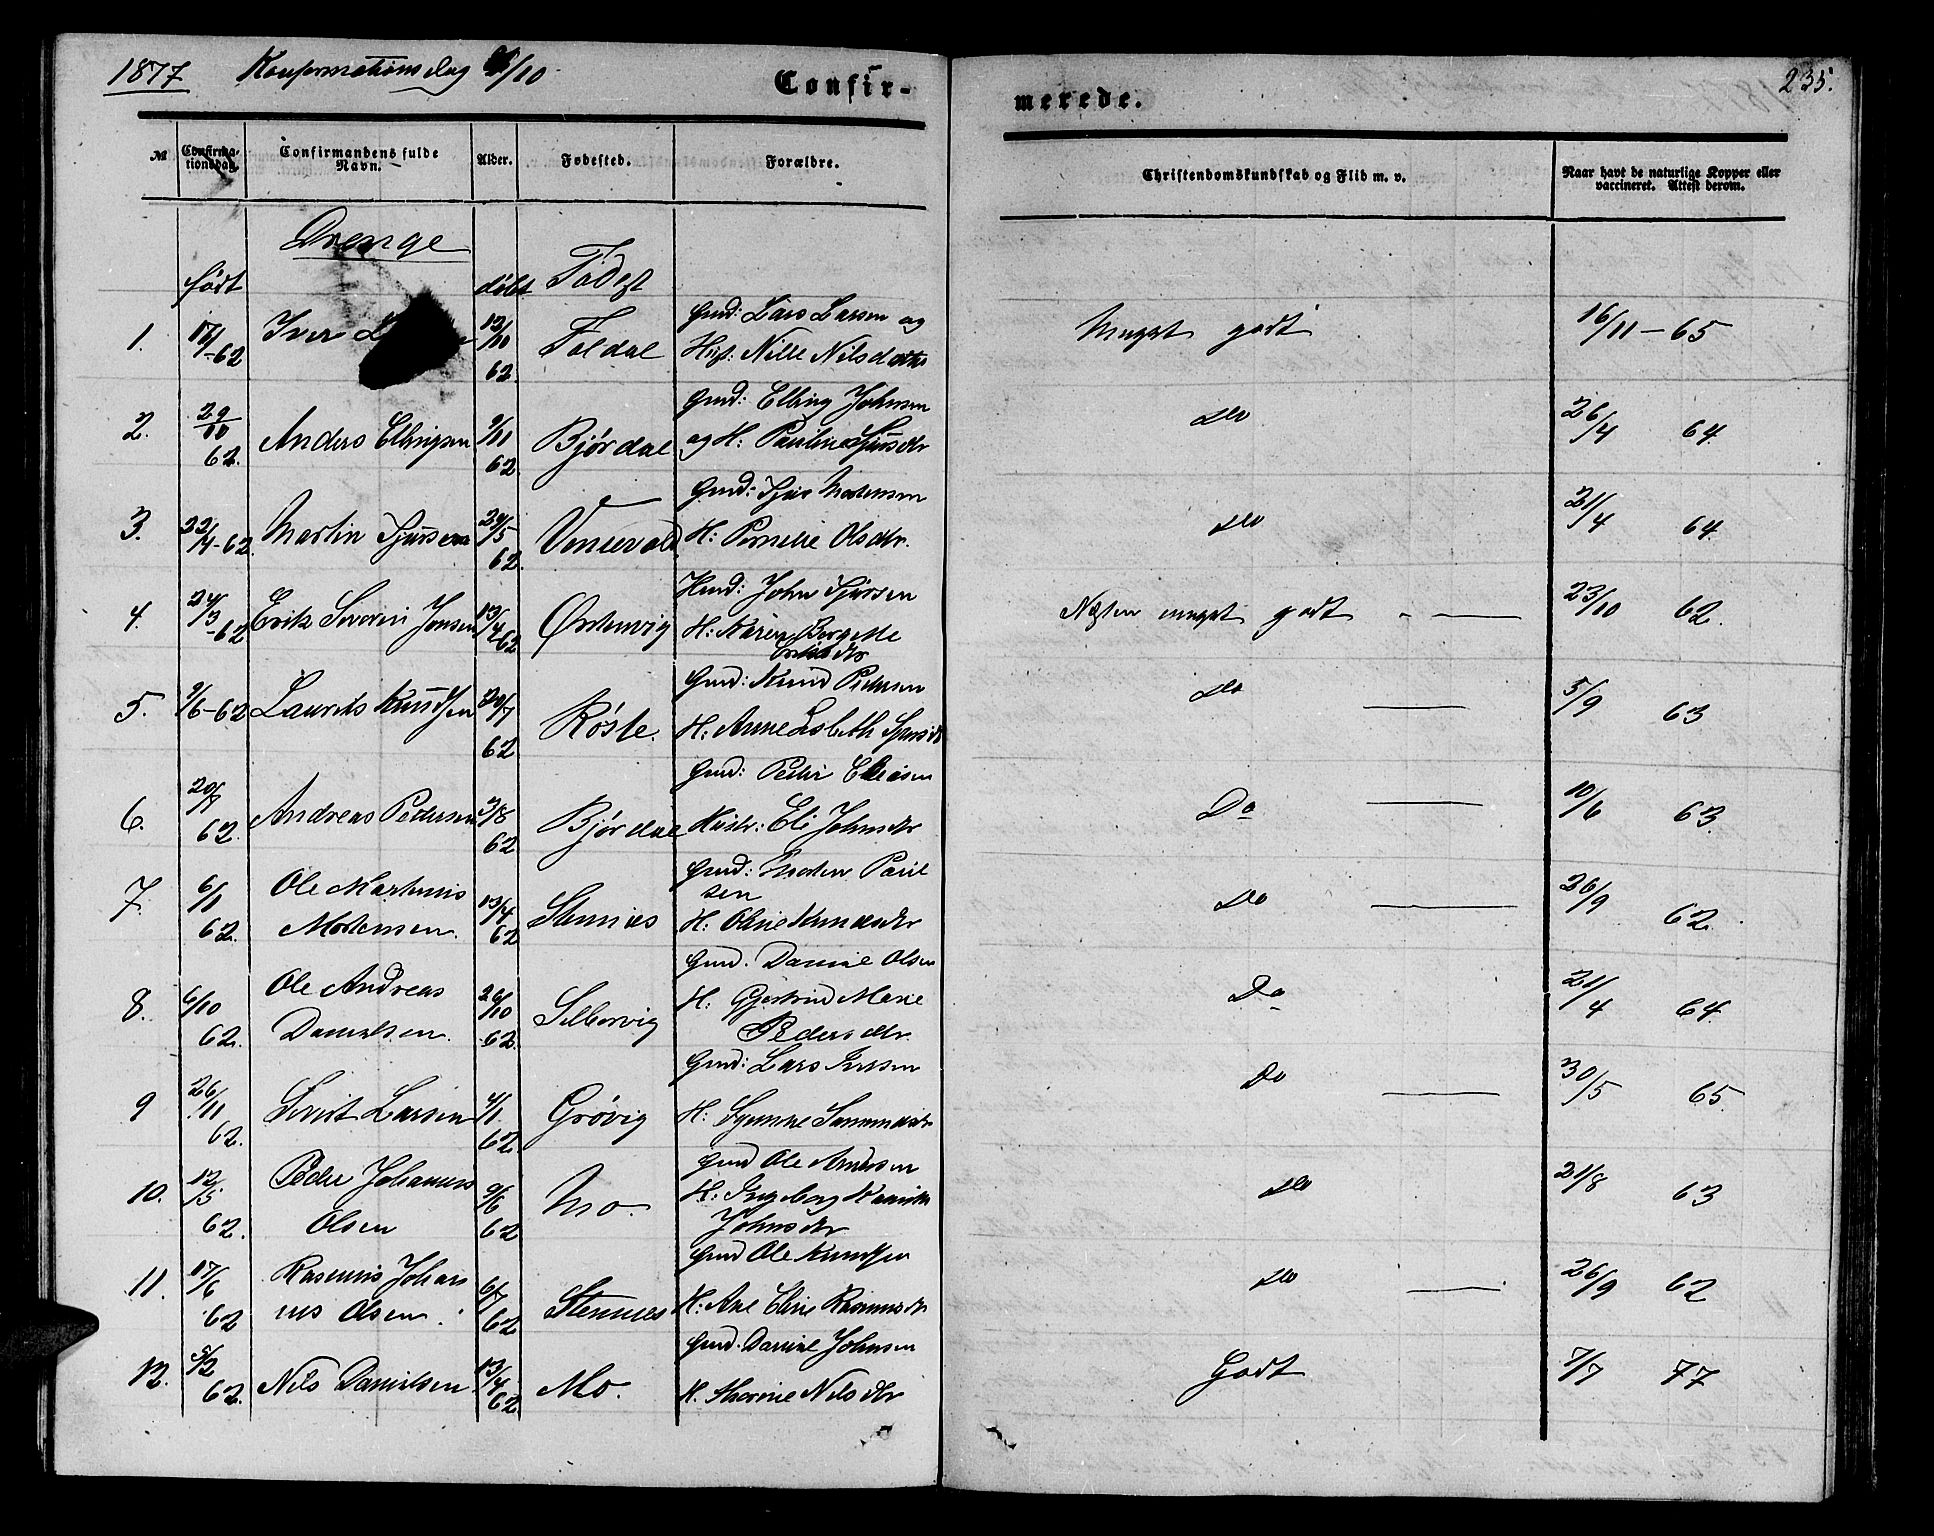 1877 Konfirmationsdag /10
Confir-
merede.
235.
№
Confirma-
tionsdag.
Confirmandens fulde
Navn.
Alder.
Fødested.
Forældre.
Christendomskundskab og Flid m. v.
Naar havt de naturlige Kopper eller
vaccineret. Attest derom.
Drenge
født døbt Födest
1. -62 Iver 12/10 62. Foldal Gmd: Lars Larsen og
Hust: Nille Nilsdatter
Meget godt 16/11 - 65
2. 29/10 62. Anders Ellingsen 9/11 62 Bjørdal Gmd: Elling Johnsen
og H: Pauline Sjursdtr
do 26/4 64.
3. 22/4-62. Martin Sjursen 29/5 62. Gmd: Sjur Mortensen
H: Pernille Olsdtr.
do 21/4 64.
4. 24/3 -62 Erik Severin Jonsen 13/4-62 Østenvig Hmd: John Sjursen
H: Karen Bergitte
Eriksdtr
Næsten meget godt - 23/10 62.
5. 9/6-62 Laurits Knudsen 20/7 62 Røste. Gmd: Knud Pedersen
H: Anne Lisbeth Sjursdtr
do 5/9 63
6. 20/7 62. Andreas Pedersen 3/8 62 Bjørdal Gmd: Peder Eliasen
Hustr: Eli Johnsdtr
Do 10/6 63.
7. 6/1 62. Ole Martinus
Mortensen. 13/4 62 Stennes Gmd: Morten Paul
sen
H: Oline Knudsdtr
Do 26/9 62.
8. 6/10 62. Ole Andreas
Danielsen. 26/10 62. Selbervig Gmd. Daniel Olsen
H: Gjertrud Marie
Pedersdtr.
Do 21/4 64.
9 26/11 62. Sivert Larsen 4/1 62. Grøvig Gmd: Lars Iversen
H: Synnøve
Do 30/5 65.
10. 12/5 62. Peder Johannes
Olsen 9/6 62 Mo. Gmd Ole Andersen
H: Ingeborg
Johnsdtr
do 21/8 63
11. 17/6 62 Rasmus Johan
nes Olsen. 6/7 62 Stennes Gmd Ole Knudsen
H: Ane Eline Rasmusdtr
do 26/9 62
12. 5/2 62. Nils Danielsen. 13/4 62 Mo. Gmd. Daniel Johnsen
H. Thorine Nilsdtr
Godt 7/7 77